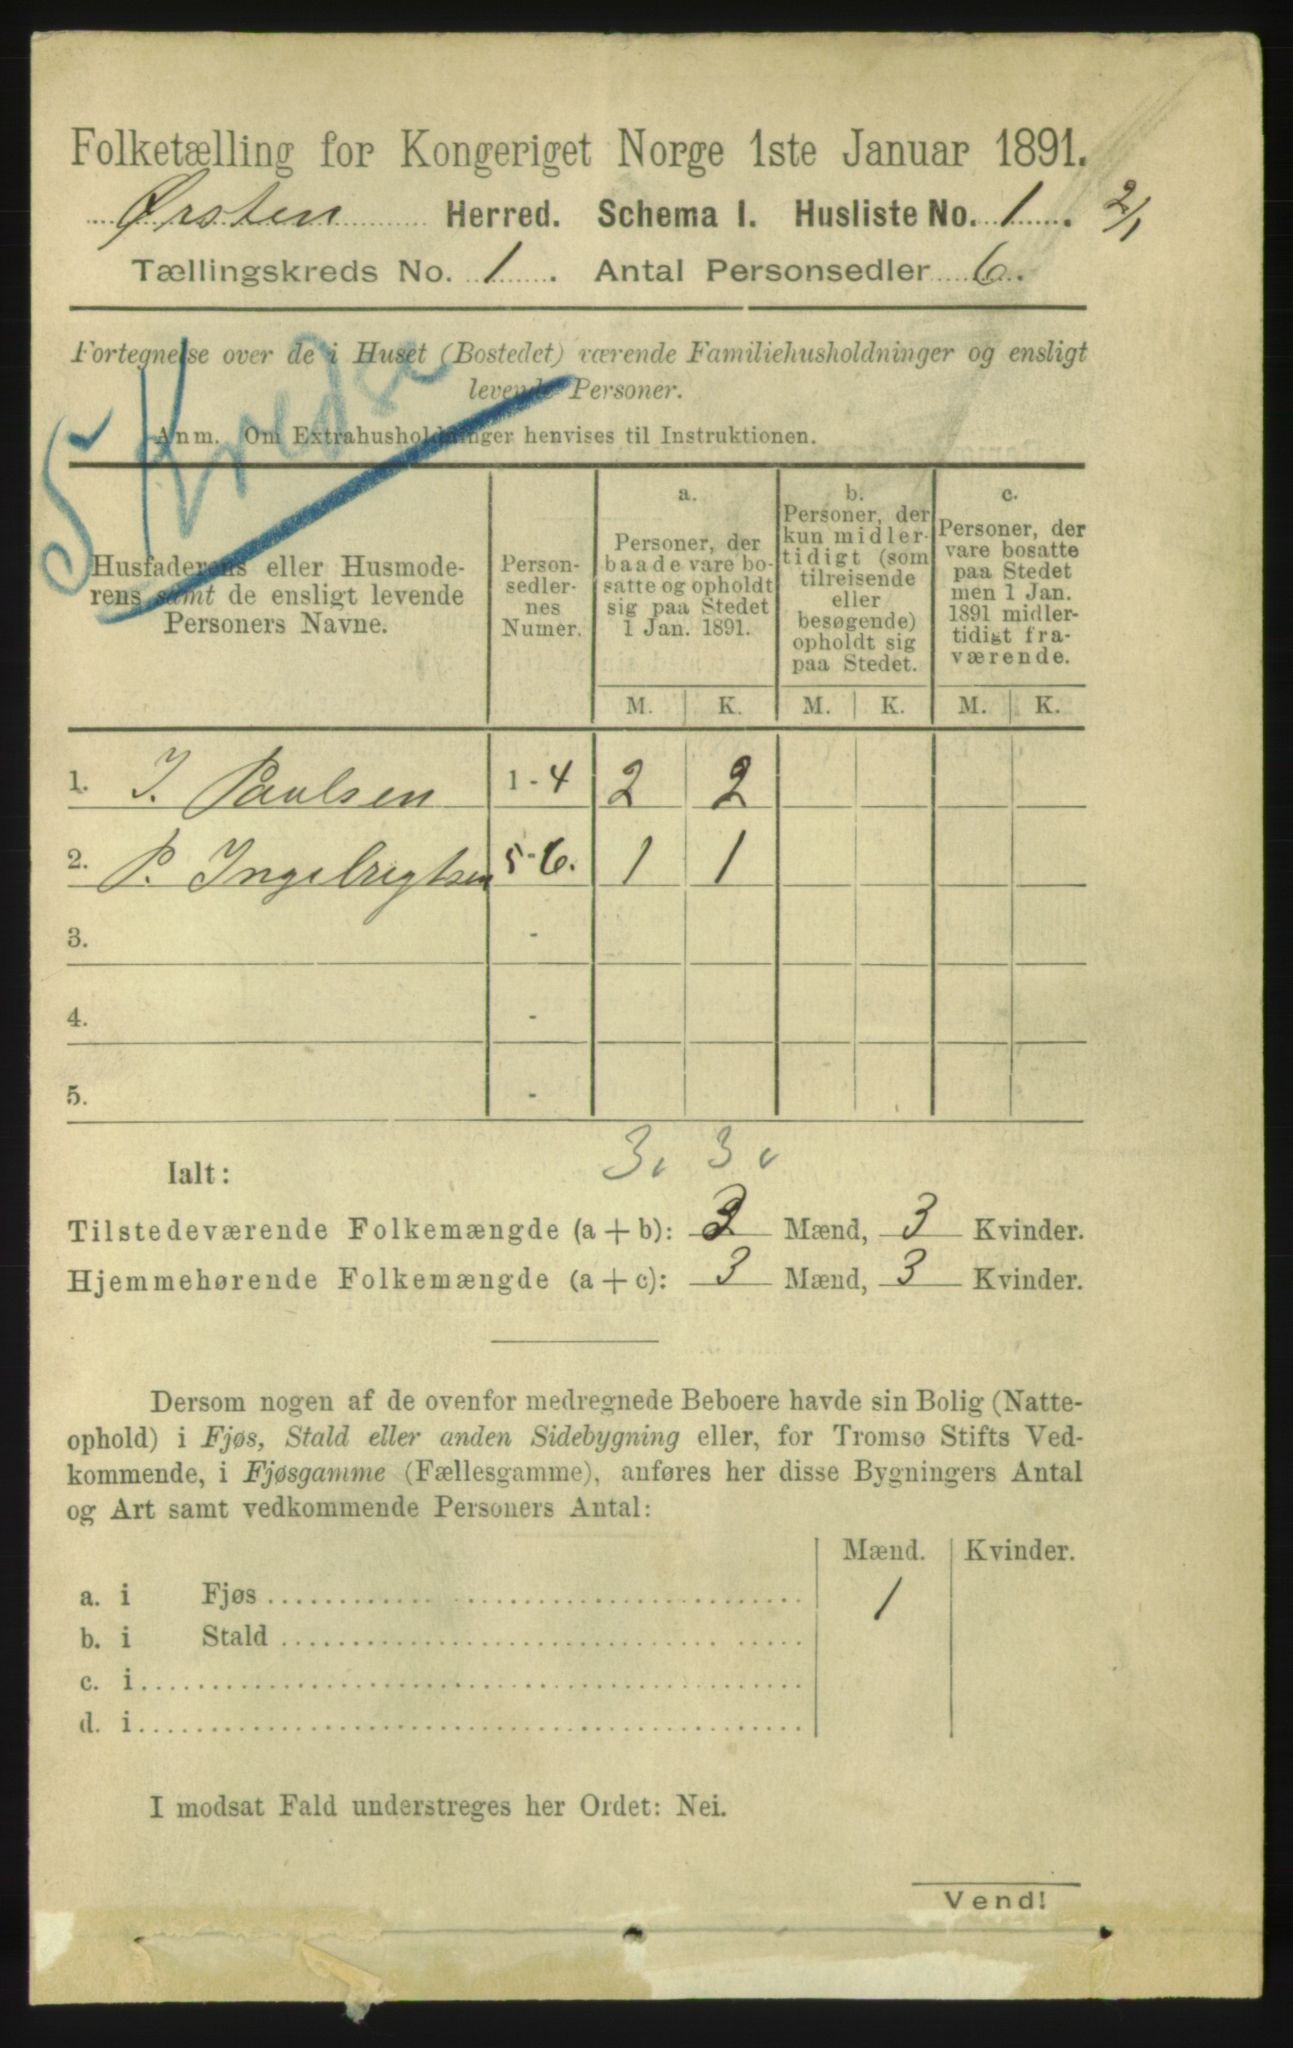 Folketælling for Kongeriget Norge 1ste Januar 1891.
Ørsten Herred. Schema I. Husliste No. 1. 2/1
Tællingskreds No. 1. Antal Personsedler 6.
Fortegnelse over de i Huset (Bostedet) værende Familiehusholdninger og ensligt
levende Personer.
Anm. Om Extrahusholdninger henvises til Instruktionen.
5 Kredse
Husfaderens eller Husmode-
rens samt de ensligt levende
Personers Navne.
Person-
sedler-
nes
Numer.
a.
Personer, der
baade vare bo-
satte og opholdt
sig paa Stedet
1 Jan. 1891.
b.
Personer, der
kun midler-
tidigt (som
tilreisende
eller
besøgende)
opholdt sig
paa Stedet.
c.
Personer, der
vare bosatte
paa Stedet
men 1 Jan.
1891 midler-
tidigt fra-
værende.
M. K. M. K. M. K.
1. I. Paulsen 1-4 2 2
2. P. Ingebrigtsen 5-6. 1 1
3. -
4. -
5. -
3. 3.
Ialt:
Tilstedeværende Folkemængde (a+b): 3 Mænd, 3 Kvinder.
Hjemmehørende Folkemængde (a+c): 3 Mænd, 3 Kvinder.
Dersom nogen af de ovenfor medregnede Beboere havde sin Bolig (Natte-
ophold) i Fjøs, Stald eller anden Sidebygning eller, for Tromsø Stifts Ved-
kommende, i Fjøsgamme (Fællesgamme), anføres her disse Bygningers Antal
og Art samt vedkommende Personers Antal:
Mænd. Kvinder.
a. i Fjøs 1
b. i Stald
c. i
d. i
I modsat Fald understreges her Ordet: Nei.
Vend!